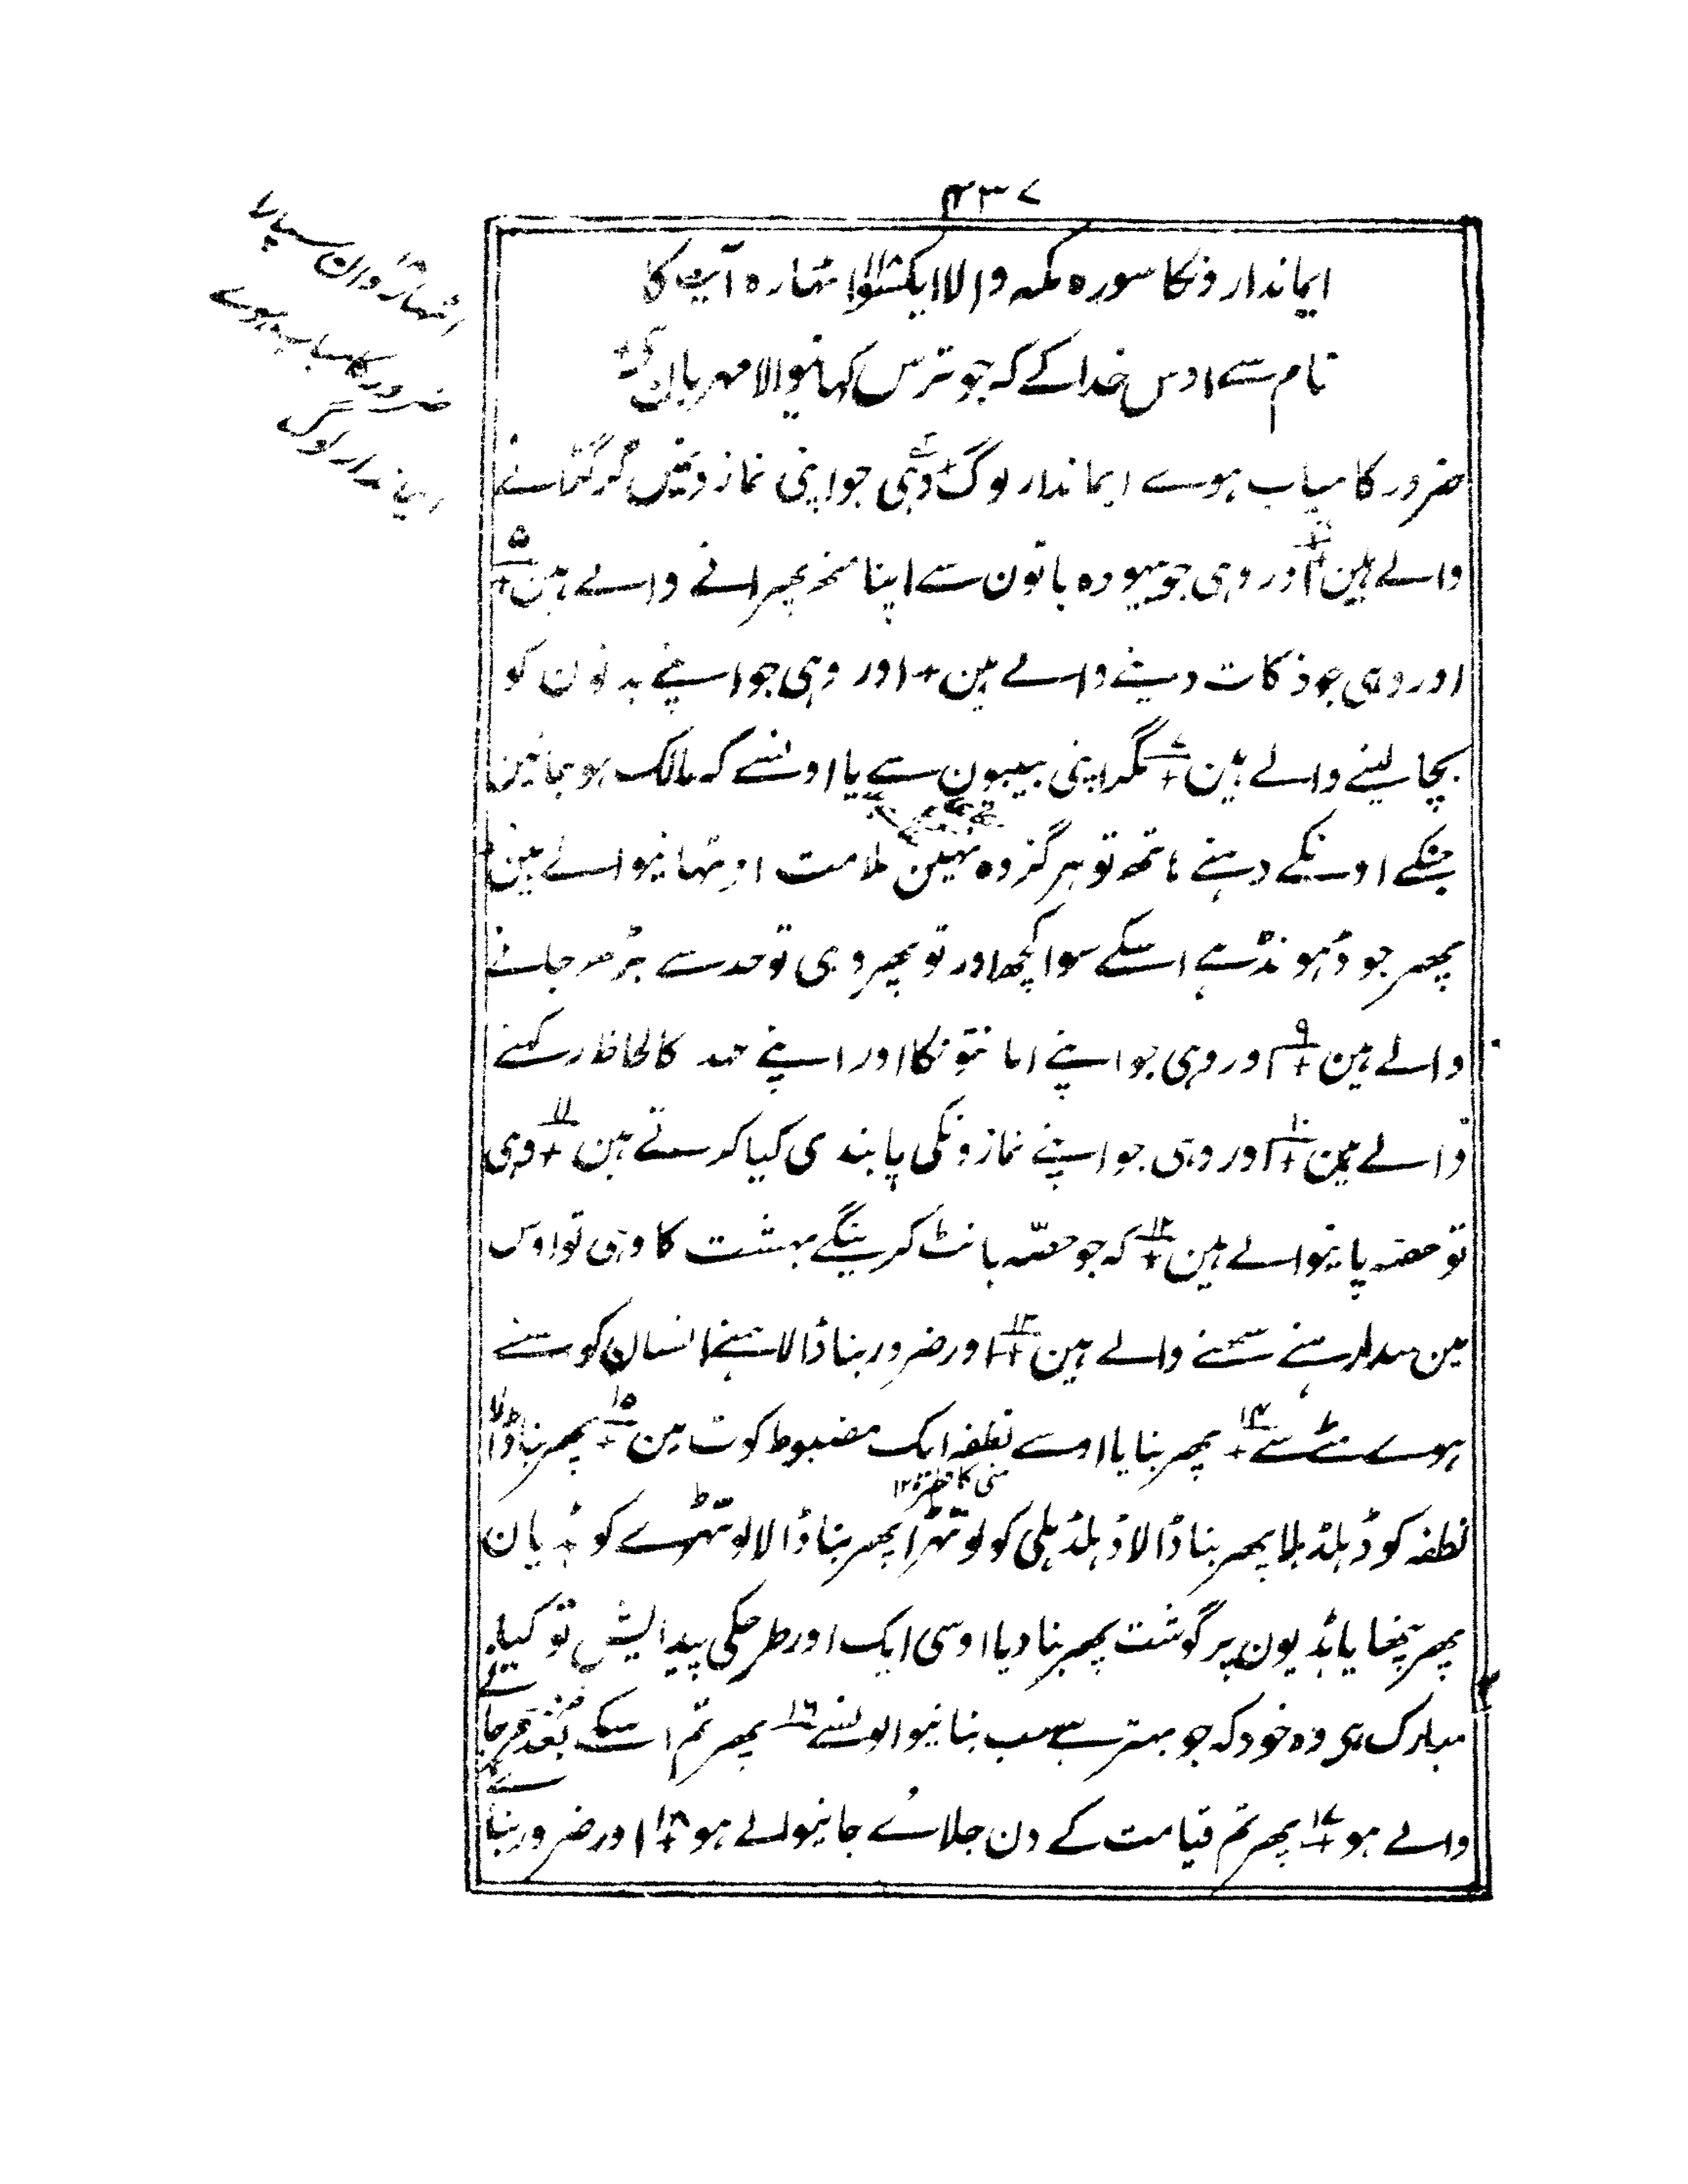 ۴۳۷
ایماندارونکا سورہ مکہ والا ایکسَو اٹھارہ آیت کا
نام سے اوس خدا کے کہ جو ترس کہانیوالا مہربان ہے
ضرور کامیاب ہوے ایماندار لوگ وہی جو اپنی نمازونمیں گڑگڑانے
والے ہین + اور وہی جو بیہودہ باتون سے اپنا منھ پھیرانے والے ہین ۵+
اور وہی جو ذکات دینے والے ہین + اور وہی جو اپنے بدنون کو
بچا لینے والے ہین + مگر اپنی بیبیون سے یا اونسے کہ مالک ہو جائین
جنکے اونکے دہنے ہاتھ تو ہرگز وہ نہین ملامت اوٹہانیوالے ہین
پھر جو ڈہونڈہے اسکے سوا کچھ اور تو پھر وہی تو حد سے بڑھ جانے
والے ہین ۹+ اور وہی جو اپنے امانتونکا اور اپنے عہد کا لحاظ رکہنے
والے ہین ۱۰+ اور وہی جو اپنے نمازونکی پابندی کیا کرتے ہین ۱۱+ وہی
تو حصہ پانیوالے ہین ۱۲+ کہ جو حصّہ بانٹ کرینگے بہشت کا وہی تو اوس
مین سدا رہنے سہنے والے ہین ۱۳+ اور ضرور بنا ڈالا ہمنے انسان کو سنے
ہوے مٹے سے ۱۴+ پھر بنایا اوسے نطفہ ایک مضبوط کوٹ مین ۱۵+ پھر بنا ڈالا
منی کا قطرہ ۱۲
نطفہ کو ڈہلڈہلا پھر بنا ڈالا ڈہلڈہلی کو لوتھڑا پھر بنا ڈالا لوتھڑے کو ہڈیان
پھر پنہایا ہڈیون پر گوشت پھر بنا دیا اوسی ایک اور طرحکی پیدایش تو کیا
مبارک ہی وہ خود کہ جو بہتر ہے سب بنانیوالونسے ۱۶ پھر تم اسکے بعد مرجانے
والے ہو ۱۷+ پھر تم قیامت کے دن جلائے جانیوالے ہو ۱۸+ اور ضرور بنا
اٹھارواں سیپارا
ضرور کامیاب ہوے
ایماندار لوگ